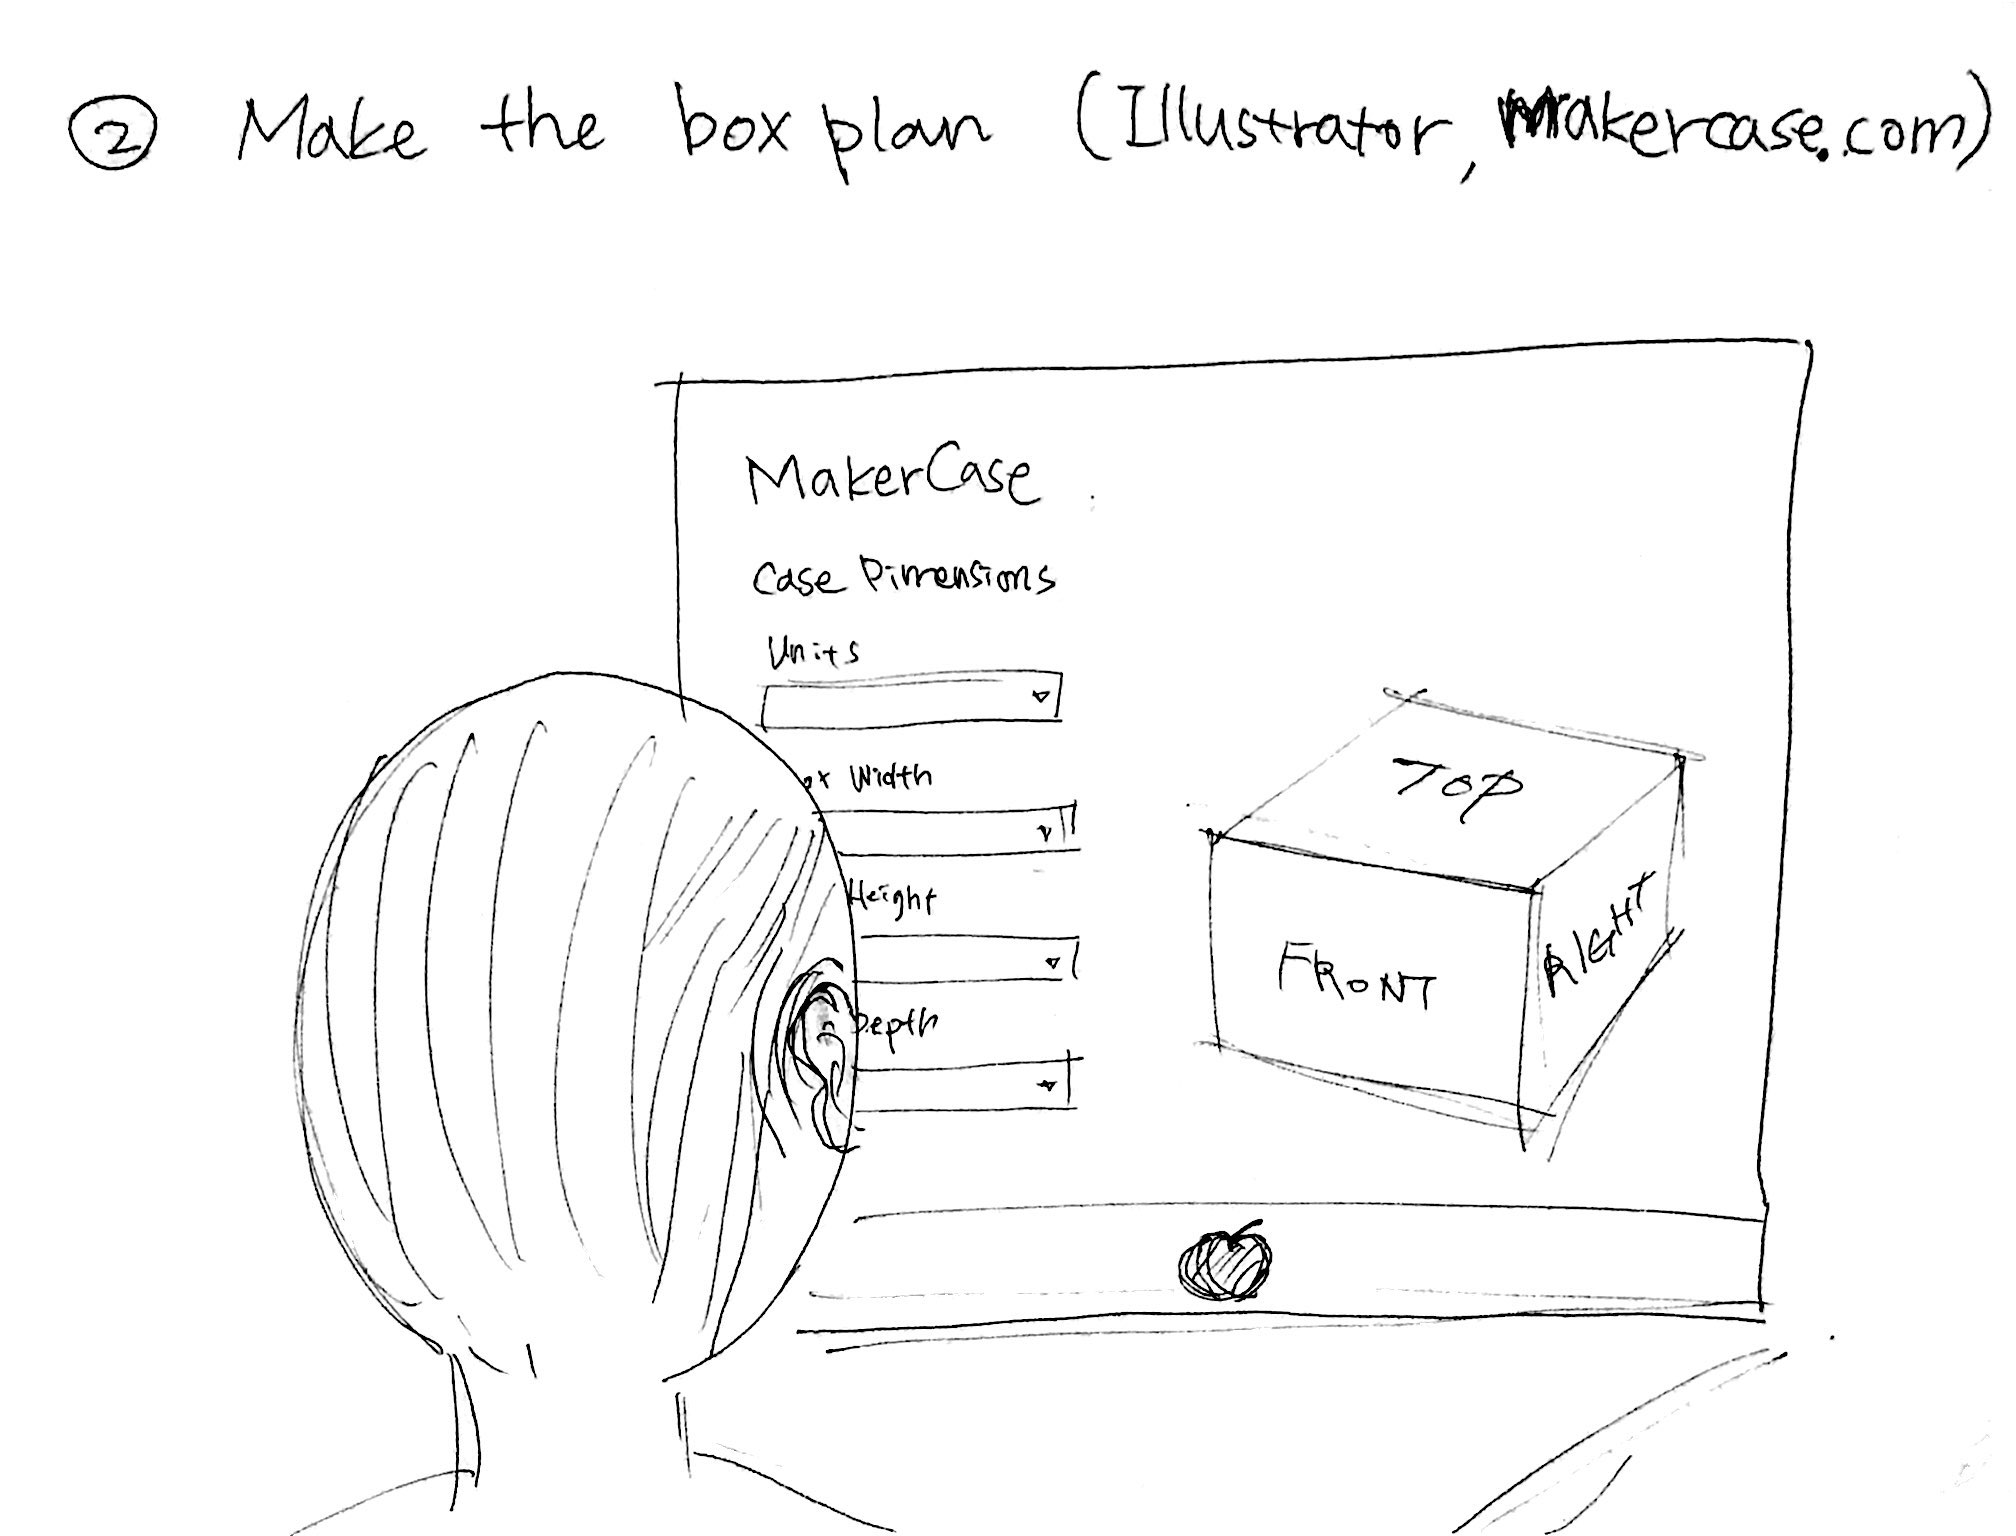 ② Make the box plan (Illustrator, Makercase.com)
MakerCase
Case Dimensions
Units
ox Width
Height
Depth
TOP
FRONT
RIGHT